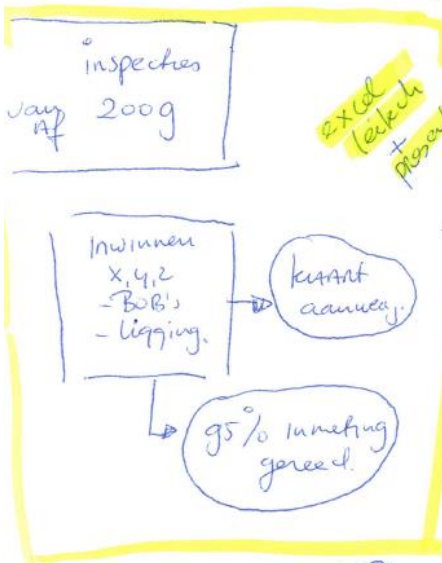 inspecties
van
Af 2009
excel
+
Inwinnen
x, y, z
- BOB's
- Ligging.
KAART
aanwezig.
95% inmeting
gereed.